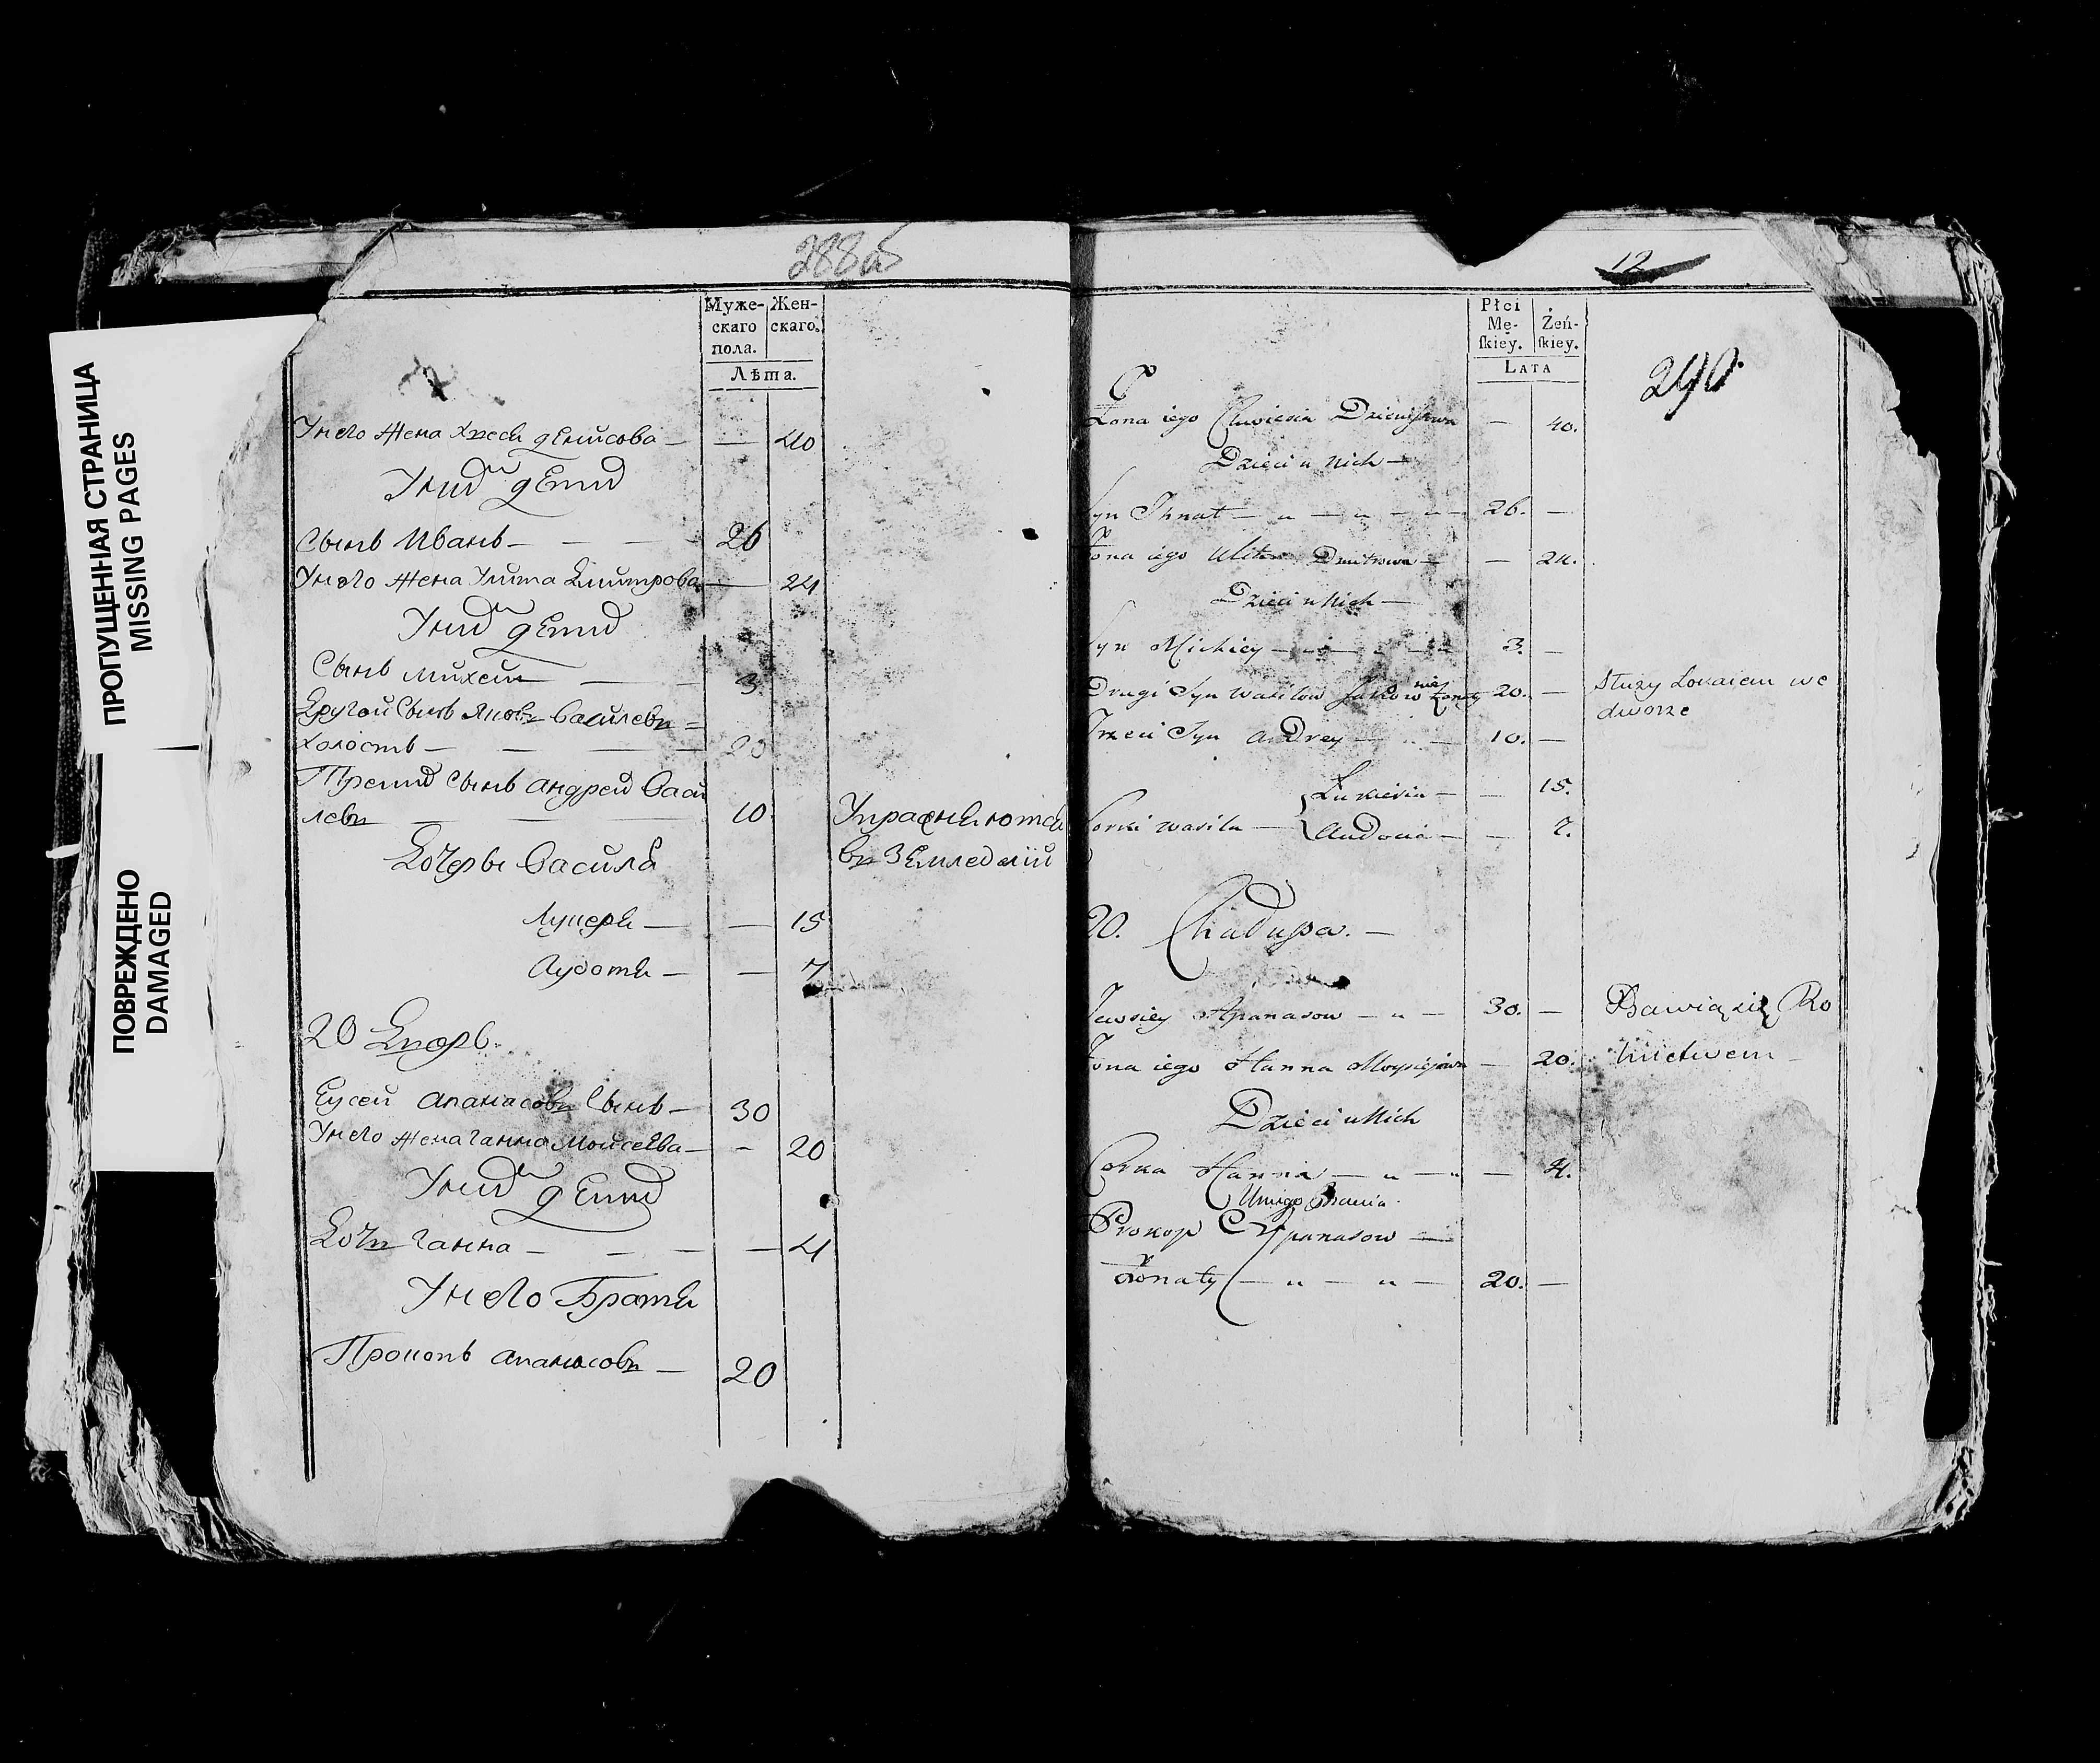 ПРОПУЩЕННАЯ СТРАНИЦА
MISSING PAGES
ПОВРЕЖДЕНО
DAMAGED
288об
Муже-
скаго
пола.
Жен-
скаго.
Лѣта.
У него жена денисова — — 40
У них дети
Сынъ Иванъ — — — 26
У него жена Улита Дмитрова — 24
У них дети
Сынъ михей — — 3
Другой Сынъ Яковъ Василевъ
холостъ — — — 20
Третий Сынъ андрей Васи
левъ — — 10
Упражняются
въ Земледелии
Дочеры Васила
Лукеря — — 15
Аудотя — — 7
20 Дворъ.
Еусей апанасовъ Сынъ — 30
У него жена ганна моисеева — — 20
У них дети
Дочъ ганна — — — — 4
У него Братя
Прокопъ апанасовъ — 20
12
Płci
Mę-
skiey.
Żeń-
skiey.
LATA
290.
Żona iego — 40.
Dzieci u Nich —
Syn Ihnat — „ — „ — „ — 26. —
Żona iego Ulita Dmitrowa — — 24.
Dzieci u Nich —
Syn Michiey — — — 3. —
Drugi Syn Wasilow Jakow nie Żonaty 20. — Służy Lokaiem we
dworze
Trzeci Syn Andrey — „ — 10. —
Łukieria — — 15.
Corki Wasila — Audocia — — 7.
20. Chałupa. —
Jewsiey Apanasow — „ — 30. — Bawią się Ro
Żona iego Hanna Moysiejowa — 20. lnictwem —
Dzieci u Nich
Corka Hanna — „ — „ — 4.
U niego Bracia
Prokop Apanasow —
Żonaty — „ — „ — 20. —